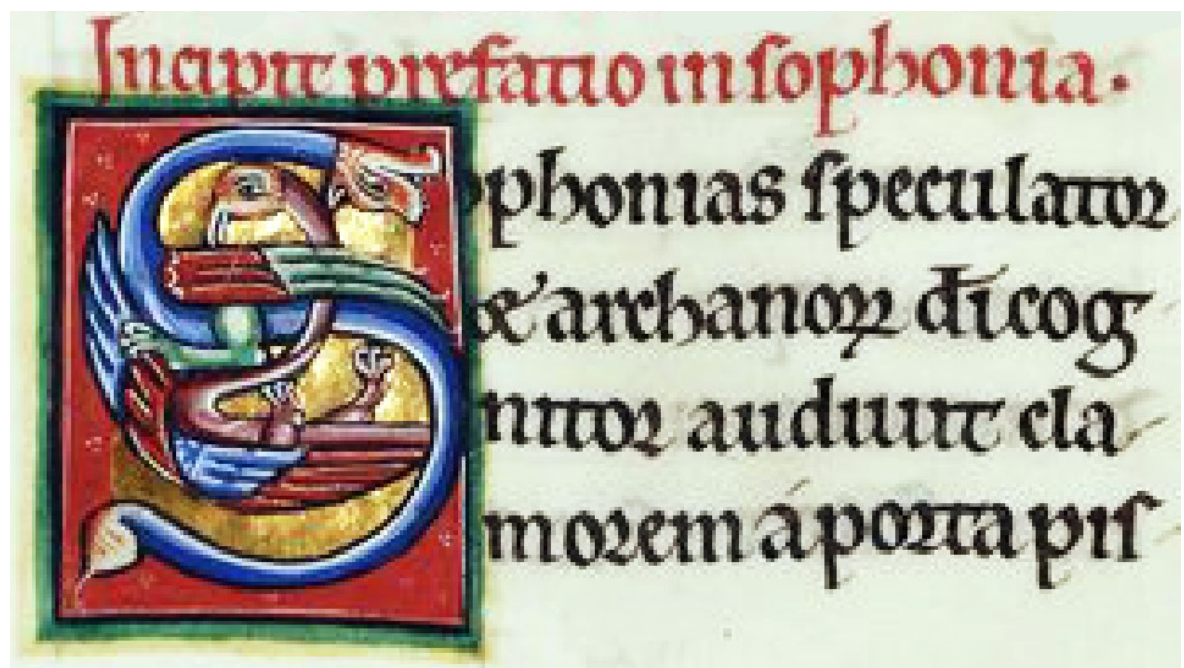 Incipit prefatio in sophonia.
Sophonias speculator
& archanoꝝ dī cog
nitor audiuit cla
morem á porta pis